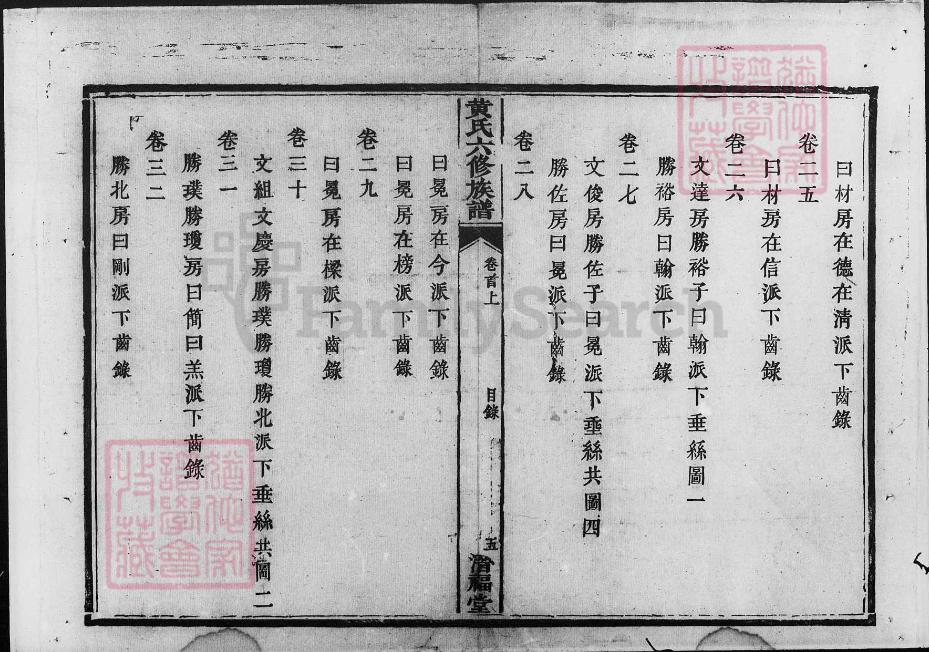 曰材房在德在清派下齒錄
卷二五
曰材房在信派下齒錄
卷二六
文達房勝裕子曰翰派下垂絲圖一
勝裕房曰翰派下齒錄
卷二七
文俊房勝佐子曰冕派下垂絲共圖四
勝佐房曰冕派下齒錄
卷二八
黃氏六修族譜
卷首上
目錄
五
曰冕房在今派下齒錄
曰冕房在榜派下齒錄
卷二九
曰冕房在樑派下齒錄
卷三十
文組文慶房勝璞勝瓊勝北派下垂絲共圖二
卷三一
勝璞勝瓊房曰簡曰羔派下齒錄
卷三二
勝北房曰剛派下齒錄
FamilySearch